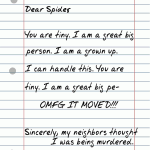 Dear Spider
You are tiny. I am a great big
person. I am a grown up.
I can handle this. You are
tiny. I am a great big pe-
OMFG IT MOVED!!!
Sincerely, my neighbors thought
I was being murdered.